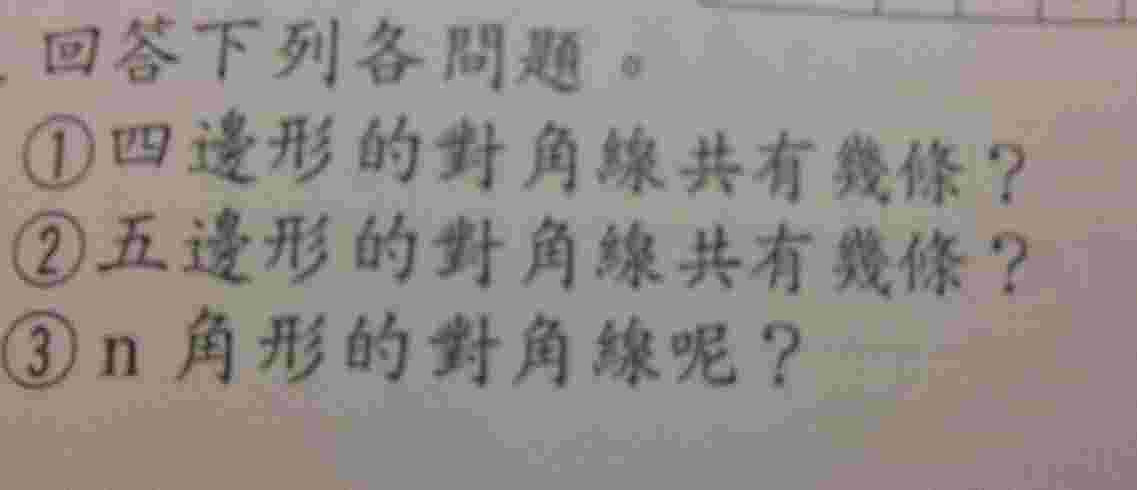 回答下列各問題。
①四邊形的對角線共有幾條？
②五邊形的對角線共有幾條？
③n 角形的對角線呢？